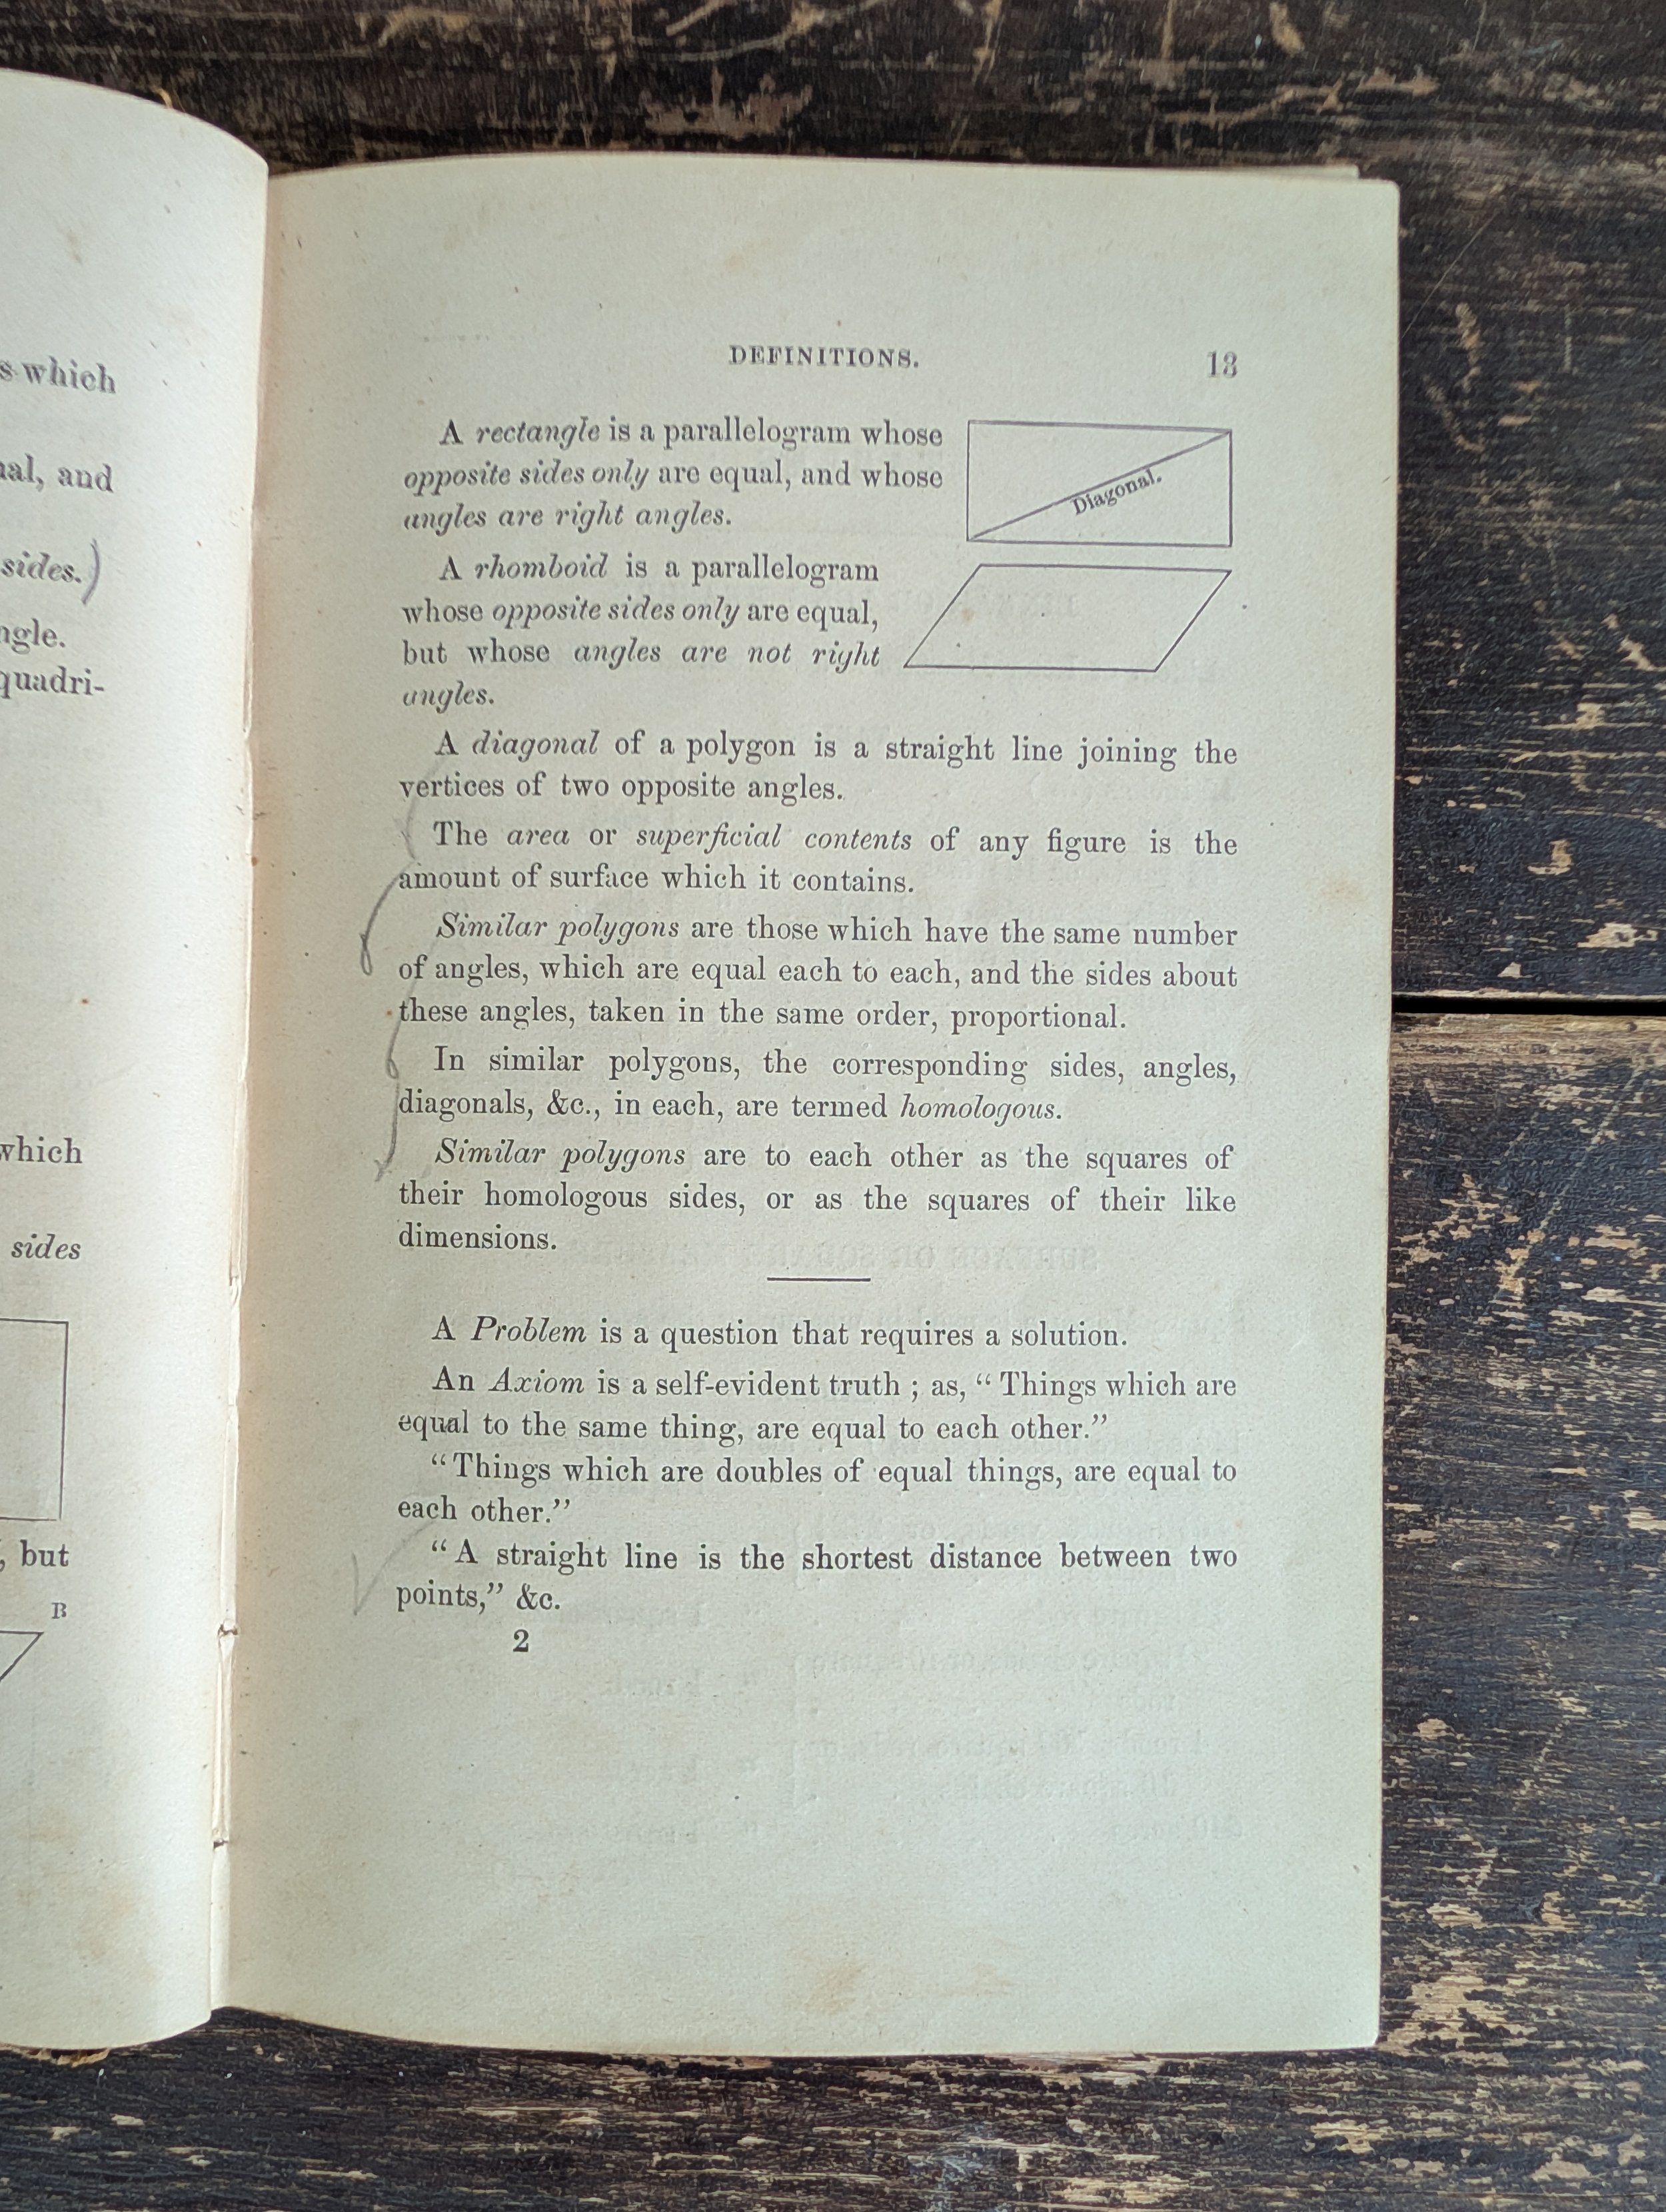 s which
and
sides.)
quadri-
which
sides
, but
B
DEFINITIONS.
13
A rectangle is a parallelogram whose
opposite sides only are equal, and whose
angles are right angles.
Diagonal.
A rhomboid is a parallelogram
whose opposite sides only are equal,
but whose angles are not right
angles.
A diagonal of a polygon is a straight line joining the
vertices of two opposite angles.
The area or superficial contents of any figure is the
amount of surface which it contains.
Similar polygons are those which have the same number
of angles, which are equal each to each, and the sides about
these angles, taken in the same order, proportional.
In similar polygons, the corresponding sides, angles,
diagonals, &c., in each, are termed homologous.
Similar polygons are to each other as the squares of
their homologous sides, or as the squares of their like
dimensions.
A Problem is a question that requires a solution.
An Axiom is a self-evident truth ; as, “ Things which are
equal to the same thing, are equal to each other.”
“Things which are doubles of equal things, are equal to
each other.”
“ A straight line is the shortest distance between two
points,” &c.
2